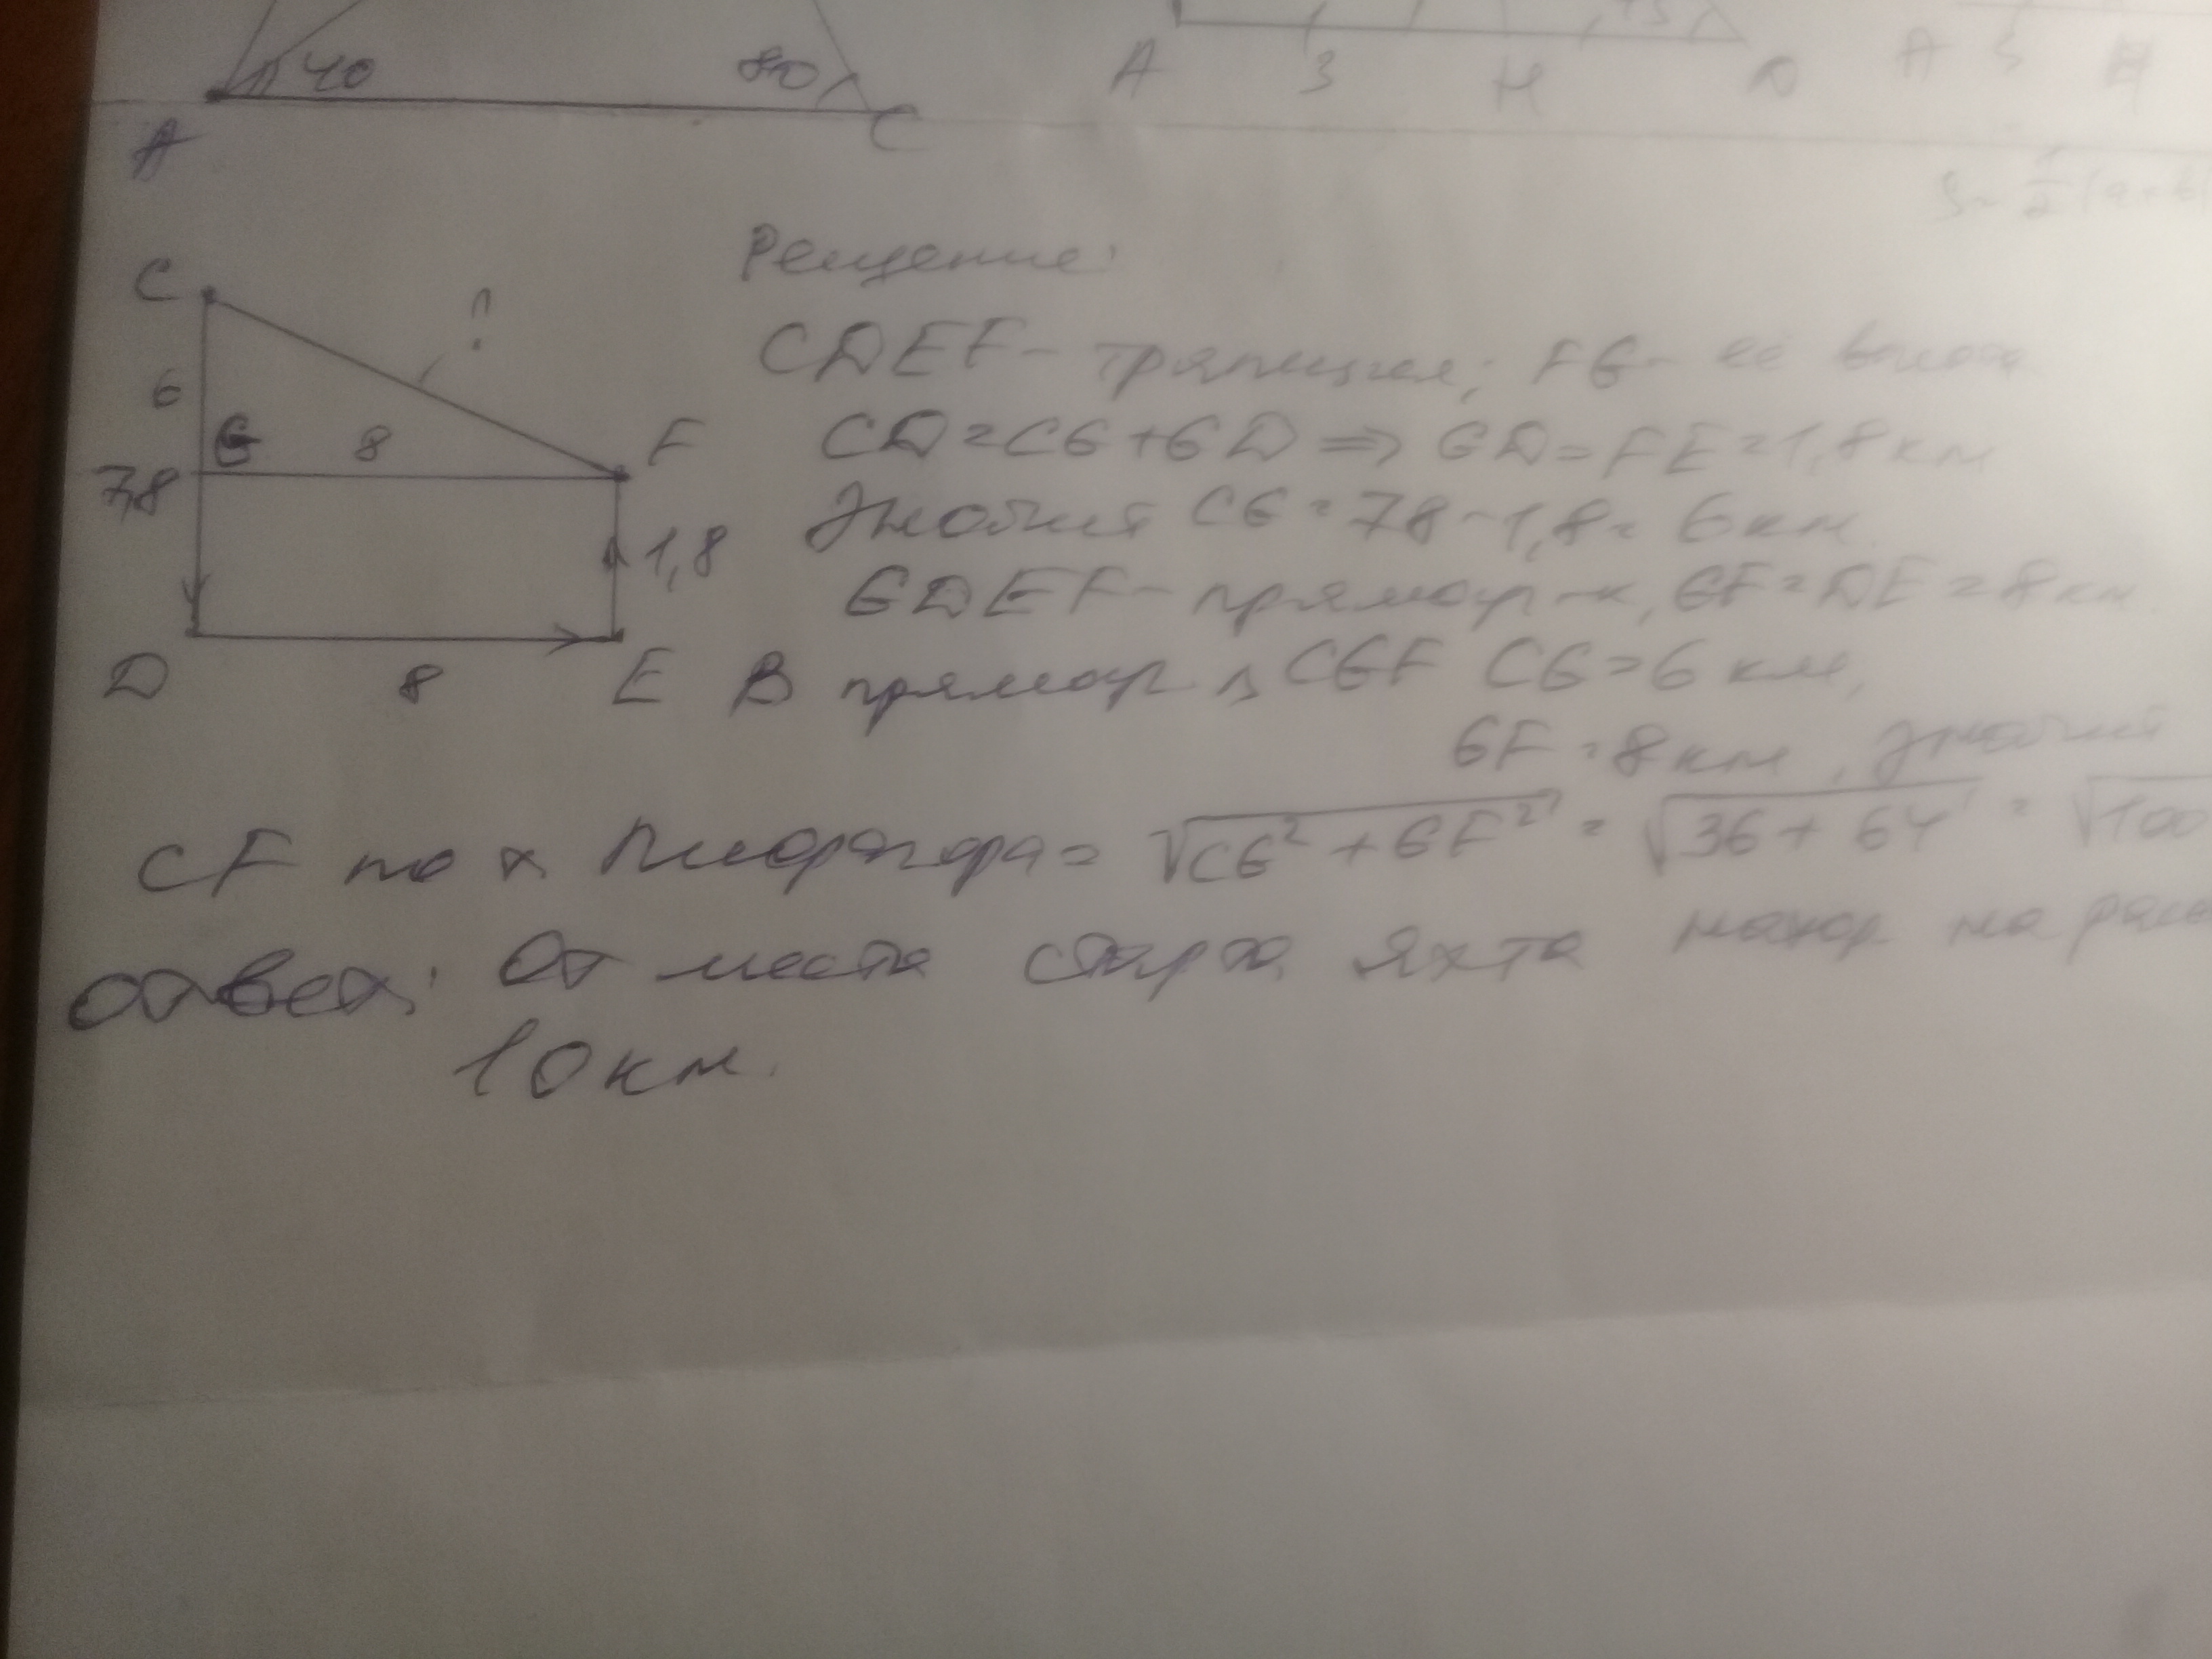 40
80
A
C
A
3
H
D
A
3
H
S = 1/2 (a+b)
Рещение:
C
?
6
G
8
F
7,8
1,8
D
8
E
CDEF - тряпиция; FG - её высота
CD = CG + GD => GD = FE = 1,8 км
Значит CG = 78 - 1,8 = 6 км
GDEF - прямоуг-к, GF = DE = 8 км
В прямоуг △ CGF CG = 6 км,
GF = 8 км, значит
CF по т Пифрагора = √CG² + GF² = √36 + 64 = √100
Ответ: От места старта яхта наход на расс
10 км.